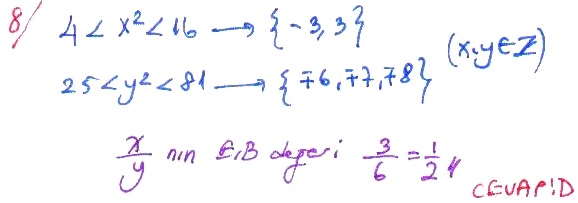 8/ 4 < x² < 16 → {-3, 3}
25 < y² < 81 → {∓6, ∓7, ∓8} (x,y∈Z)
x/y nin E.B değeri 3/6 = 1/2 //
CEVAP!D